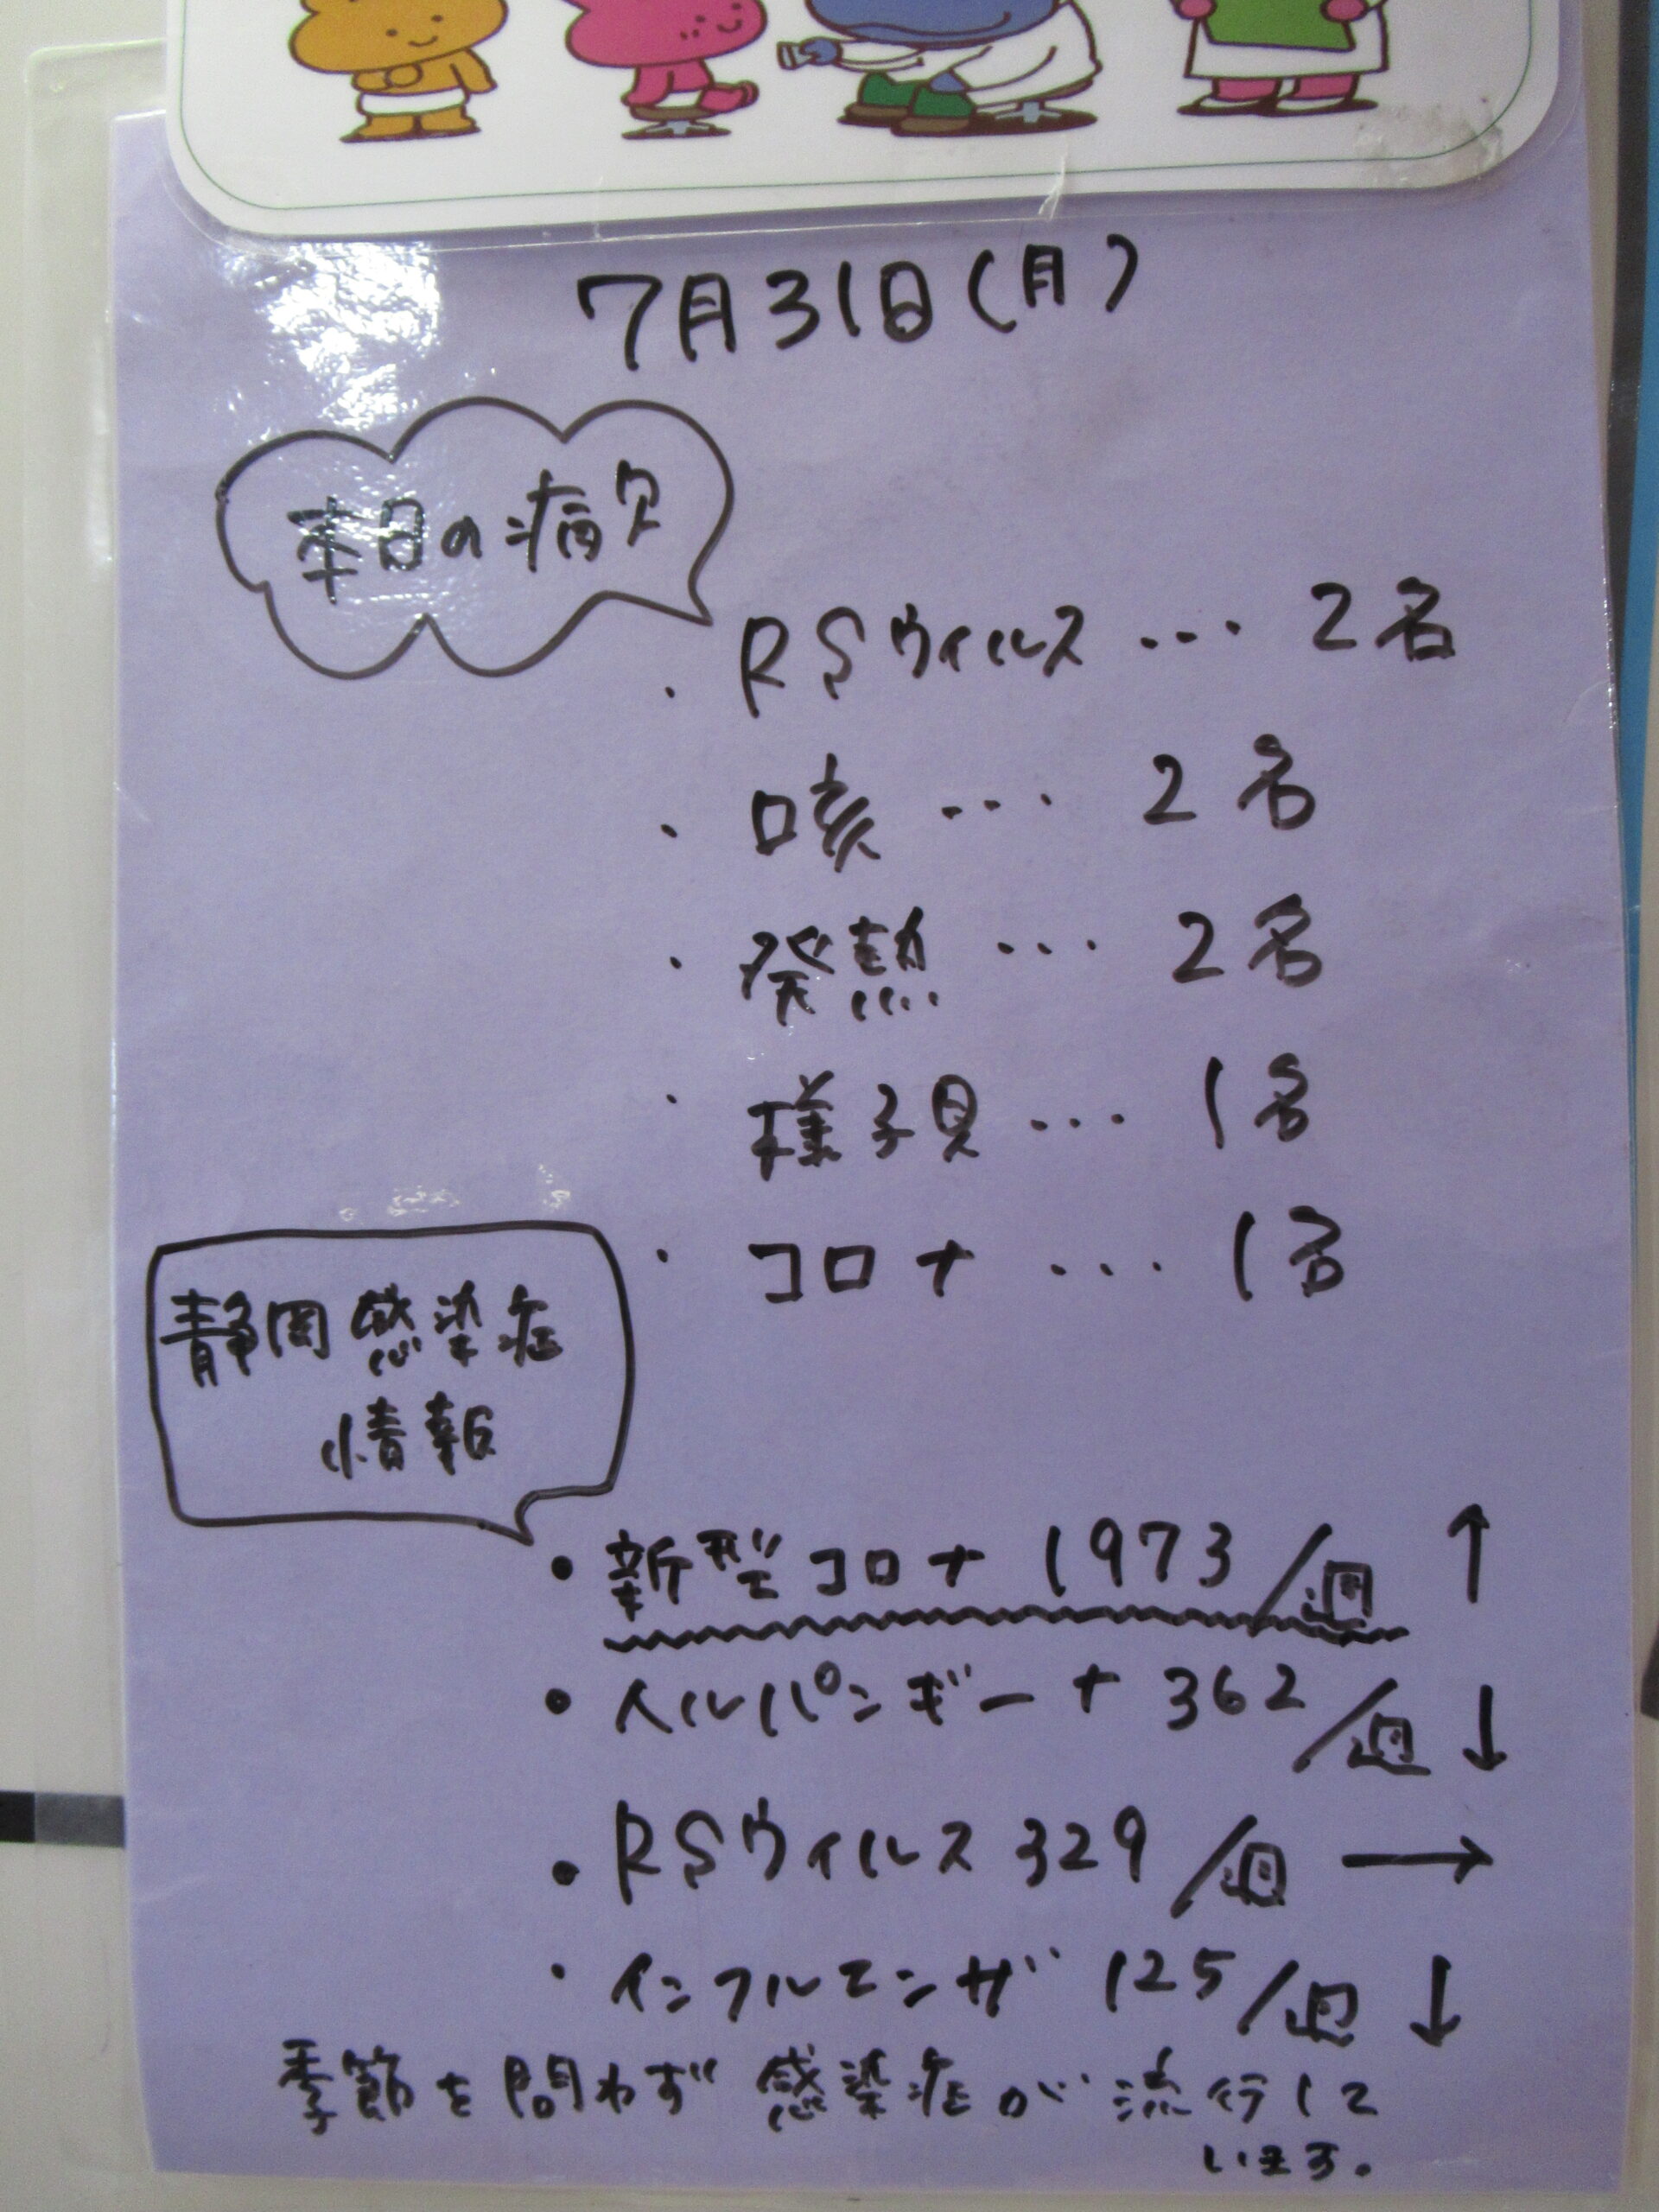 7月31日(月)
本日の病欠
・RSウィルス … 2名
・咳 … 2名
・発熱 … 2名
・様子見 … 1名
・コロナ … 1名
静岡感染症
情報
・新型コロナ 1973/週 ↑
・ヘルパンギーナ 362/週 ↓
・RSウィルス 329/週 →
・インフルエンザ 125/週 ↓
季節を問わず感染症が流行して
います。